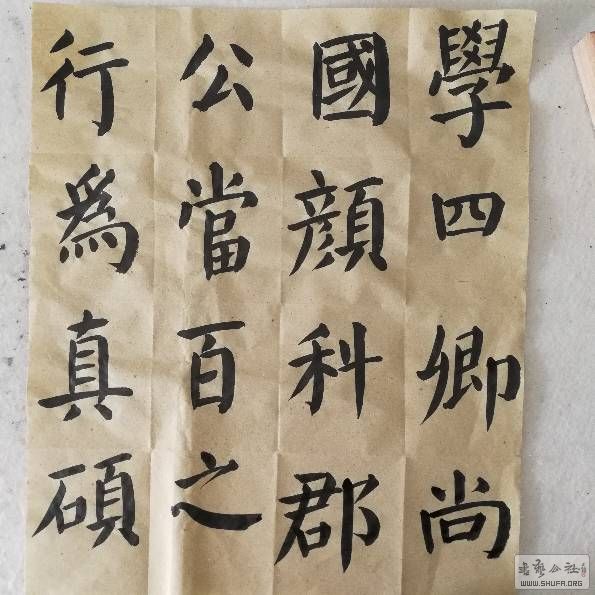 學四卿尚
國顔科郡
公當百之
行爲真碩
WWW.SHUFA.ORG